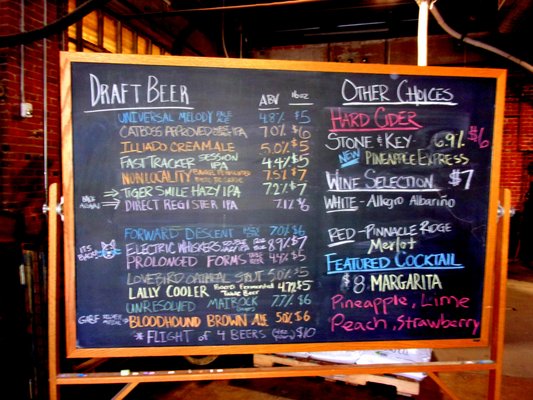 DRAFT BEER ABV 16oz
UNIVERSAL MELODY 4.8% $5
CATBOSS APPROVED IPA 7.0% $6
ILLIAD CREAM ALE 5.0% $5
FAST TRACKER SESSION IPA 4.4% $5
NON LOCALITY 7.5% $7
BACK AGAIN! → TIGER SMILE HAZY IPA 7.2% $7
→ DIRECT REGISTER IPA 7.1% $6
FORWARD DESCENT 7.0% $6
IT'S BACK! ELECTRIC WHISKERS DOUBLE IPA 8.9% $7
PROLONGED FORMS 4.9% $5
LOVEBIRD OATMEAL STOUT 5.0% $5
LALLY COOLER FOEDER FERMENTED TABLE BEER 4.7% $5
UNRESOLVED MATROCK 7.7% $6
GABF SILVER MEDAL → BLOODHOUND BROWN ALE 5.0% $6
* FLIGHT OF 4 BEERS $10
OTHER CHOICES
HARD CIDER
STONE & KEY 6.9% $6
NEW PINEAPPLE EXPRESS
WINE SELECTION $7
WHITE - Allegro Albariño
RED - PINNACLE RIDGE
Merlot
FEATURED COCKTAIL
$8 MARGARITA
Pineapple, Lime
Peach, Strawberry